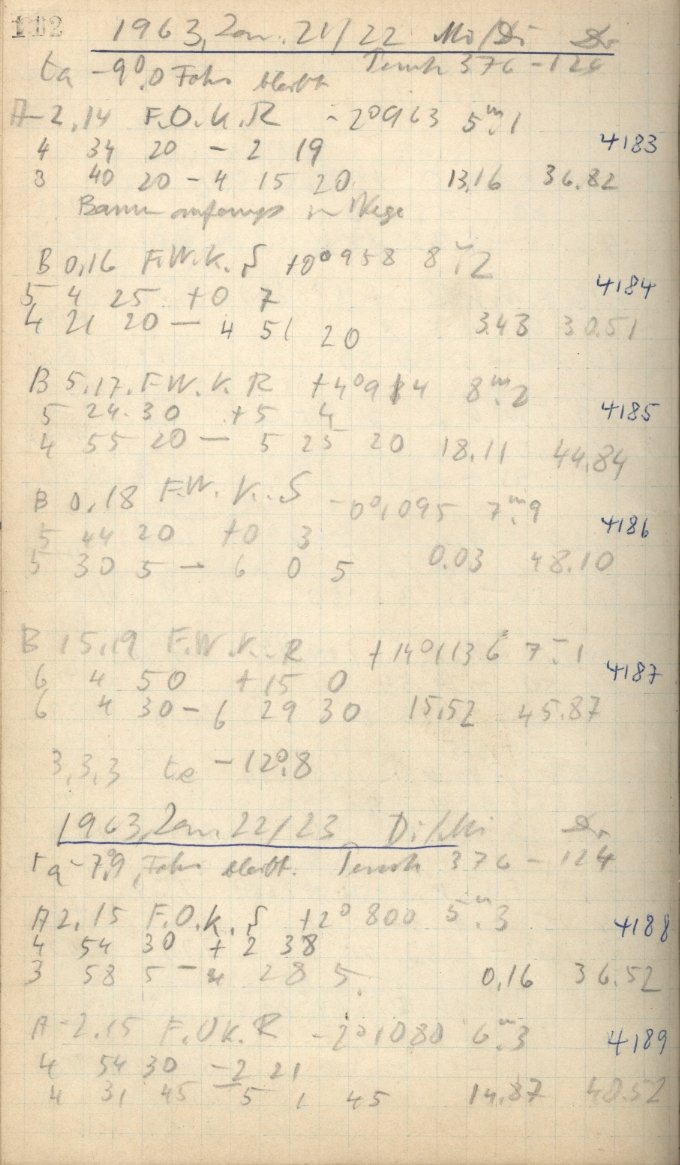 132
1963, Jan. 21/22 Mo/Di Dr
ta -9°,0 Fokus bleibt Temok 376 - 124
A-2,14 F.O.K.R -2°963 5m,1
4183
4 34 20 - 2 19
3 40 20 - 4 15 20 13,16 36.82
Baum anfangs im Wege
B 0,16 F.W.K.S +0°958 8m,2
4184
5 4 25 +0 7
4 21 20 - 4 51 20 3.43 30.51
B 5,17. F.W.K.R +4°914 8m,2
4185
5 24 30 +5 4
4 55 20 - 5 25 20 18.11 44,84
B 0,18 F.W.K.S -0°1095 7m,9
4186
5 44 20 +0 3
5 30 5 - 6 0 5 0.03 48.10
B 15,19 F.W.K.R +14°1136 7m,1
4187
6 4 50 +15 0
6 4 30 - 6 29 30 15,52 45.87
3,3,3 te -12°,8
1963, Jan. 22/23 Di/Mi Dr
ta -7°,9, Fokus bleibt. 376 - 124
A 2,15 F.O.K.S +2°800 5m,3
4188
4 54 30 +2 38
3 58 5 - 4 28 5. 0,16 36.52
A -2.15 F.O.K.R -2°1080 6m,3
4189
4 54 30 -2 21
4 31 45 - 5 1 45 14,87 48.52